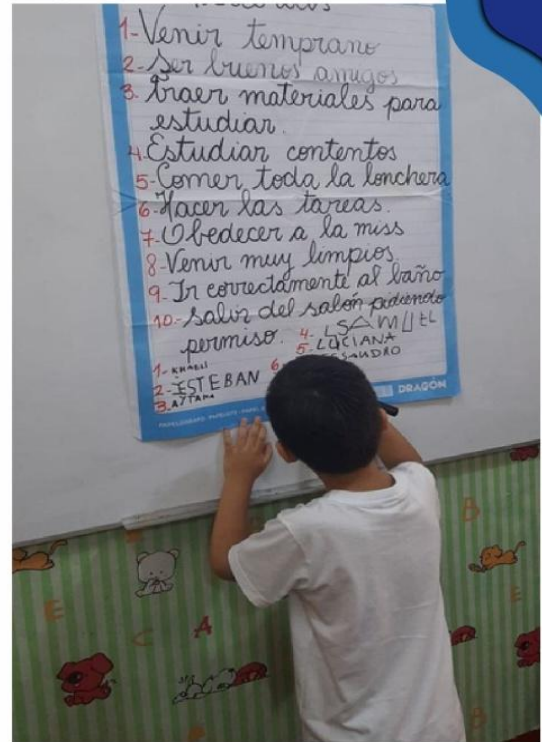 1-Venir temprano
2-Ser buenos amigos
3. Traer materiales para
estudiar.
4. Estudiar contentos
5-Comer toda la lonchera
6-Hacer las tareas.
7-Obedecer a la miss
8-Venir muy limpios.
9-Ir correctamente al baño
10.-Salir del salón pidiendo
permiso.
4- ISAMUEL
5. LUCIANA
1- KHALIL
2-ESTEBAN
3.AITANA
6
DRAGÓN
B
E
C
A